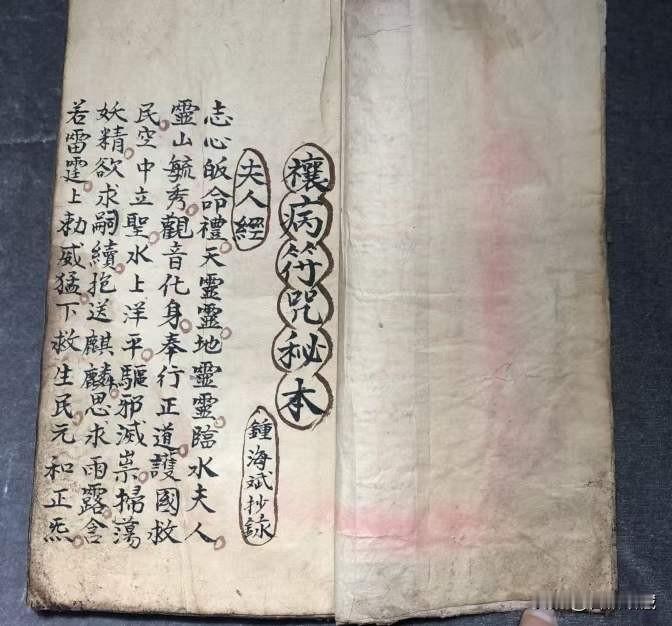 禳病符咒秘本
鍾海斌抄錄
夫人經
志心皈命禮天靈靈地靈靈臨水夫人
靈山毓秀觀音化身奉行正道護國救
民空中立聖水上洋平驅邪滅祟掃蕩
妖精欲求嗣續抱送麒麟思求雨露含
若雷霆上勅威猛下救生民元和正炁